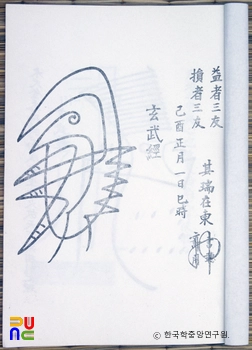 益者三友
損者三友
其瑞在東
己酉正月一日巳時
玄武經
ⓒ 한국학중앙연구원